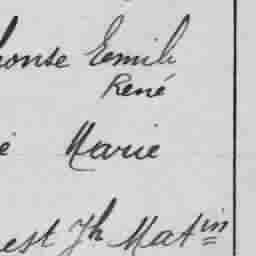 honse Eemile
René
é Marie
nest Jh Mat in